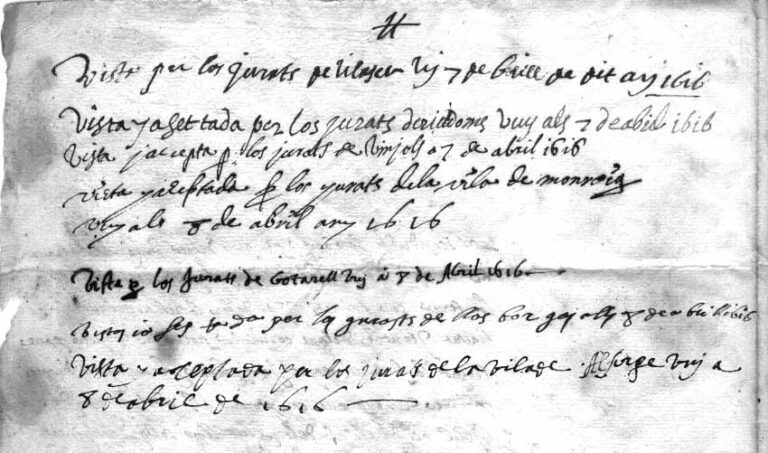 vista per los jurats de vilaseca vuy 7 de brill de dit any 1616
vista y asettada per los jurats de riudoms vuy als 7 de abril 1616
vista y accepta p. los jurats de vinjols a 7 de abril 1616
vista y azeptada p los jurats de la vila de monroig
vuy als 8 de abril any 1616
vista p los Jurats de Botarell vuy à 8 de Abril 1616
per los de les borges als 8 de abrill 1616
vista y acceptada per los jurats de la vila de Alforge vuy a
8 de abril de 1616